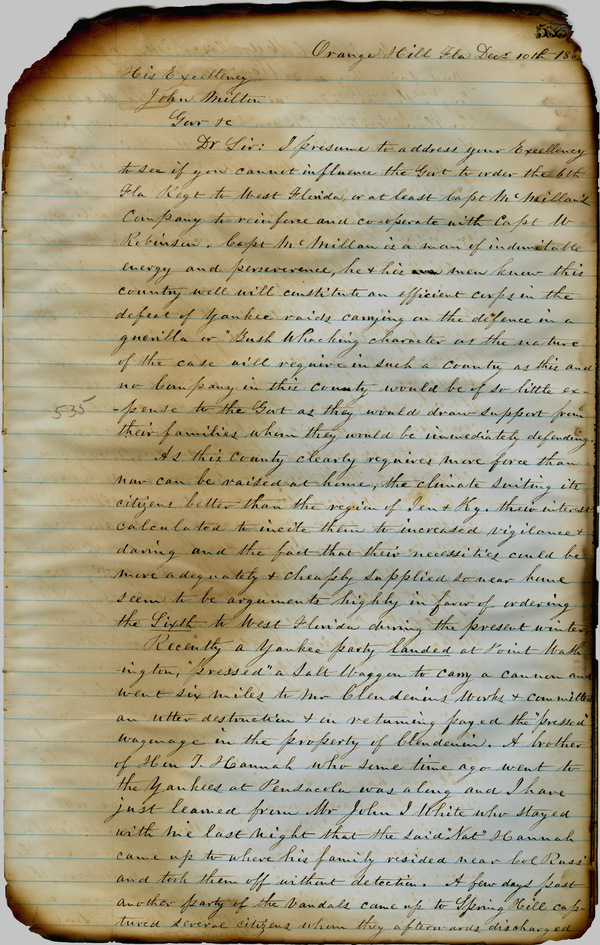 535
Orange Hill Fla Decr 10th 186
His Excellency
John Milton
Govr &c
Dr Sir: I presume to address your Excellency
to see if you cannot influence the Govt to order the 6th
Fla Regt to West Florida, or at least Capt McMillan's
Company to reinforce and co-operate with Capt W
Robinson. Capt McMillan is a man of indomitable
energy and perseverence, he & his men know this
country well will constitute an efficient corps in the
defeat of Yankee raids carrying on the defence in a
guerilla or "Bush Whacking character as the nature
of the case will require in such a country as this and
no Company in this county would be of so little ex-
-pense to the Govt as they would draw support from
535
their families whom they would be immediately defending.
As this County clearly requires more force than
now can be raised at home, the climate suiting its
citizens better than the region of Ten & Ky. their interest
calculated to incite them to increased vigilance &
daring and the fact that their necessities could be
more adequately & cheaply supplied so near home
seem to be arguments highly in favor of ordering
the Sixth to West Florida during the present winter
Recently a Yankee party landed at Point Wash
-ington, "pressed" a Salt Waggon to carry a cannon and
went six miles to Mr Clendenins Works & committed
an utter destruction & on returning payed the "pressed"
wagonage in the property of Clendenin. A brother
of Hon T. Hannah who some time ago went to
the Yankees at Pensacola was along and I have
just learned from Mr John I White who stayed
with me last night that the said "Nat" Hannah
came up to where his family resided near Col Russ'
and took them off without detection. A few days past
another party of the Vandals came up to Spring Hill cap-
tured several citizens whom they afterwards discharged